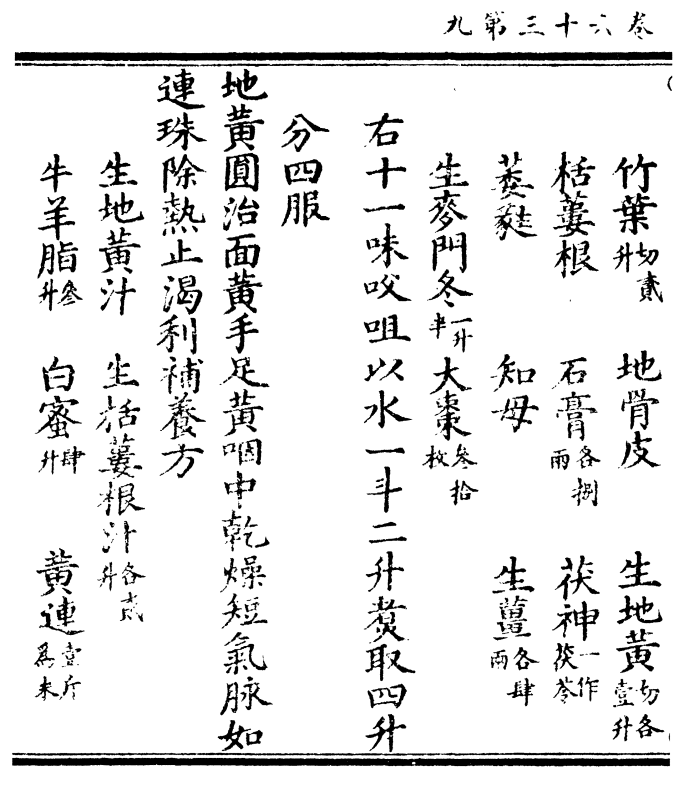 卷六十三第九
竹葉切貳升 地骨皮 生地黃切各壹升
栝蔞根 石膏各捌兩 茯神一作茯苓
萎蕤 知母 生薑各肆兩
生麥門冬一升半 大棗叄拾枚
右十一味㕮咀以水一斗二升煮取四升
分四服
地黃圓治面黃手足黃咽中乾燥短氣脉如
連珠除熱止渴利補養方
生地黃汁 生栝蔞根汁各貳升
牛羊脂叄升 白蜜肆升 黃連壹斤爲末